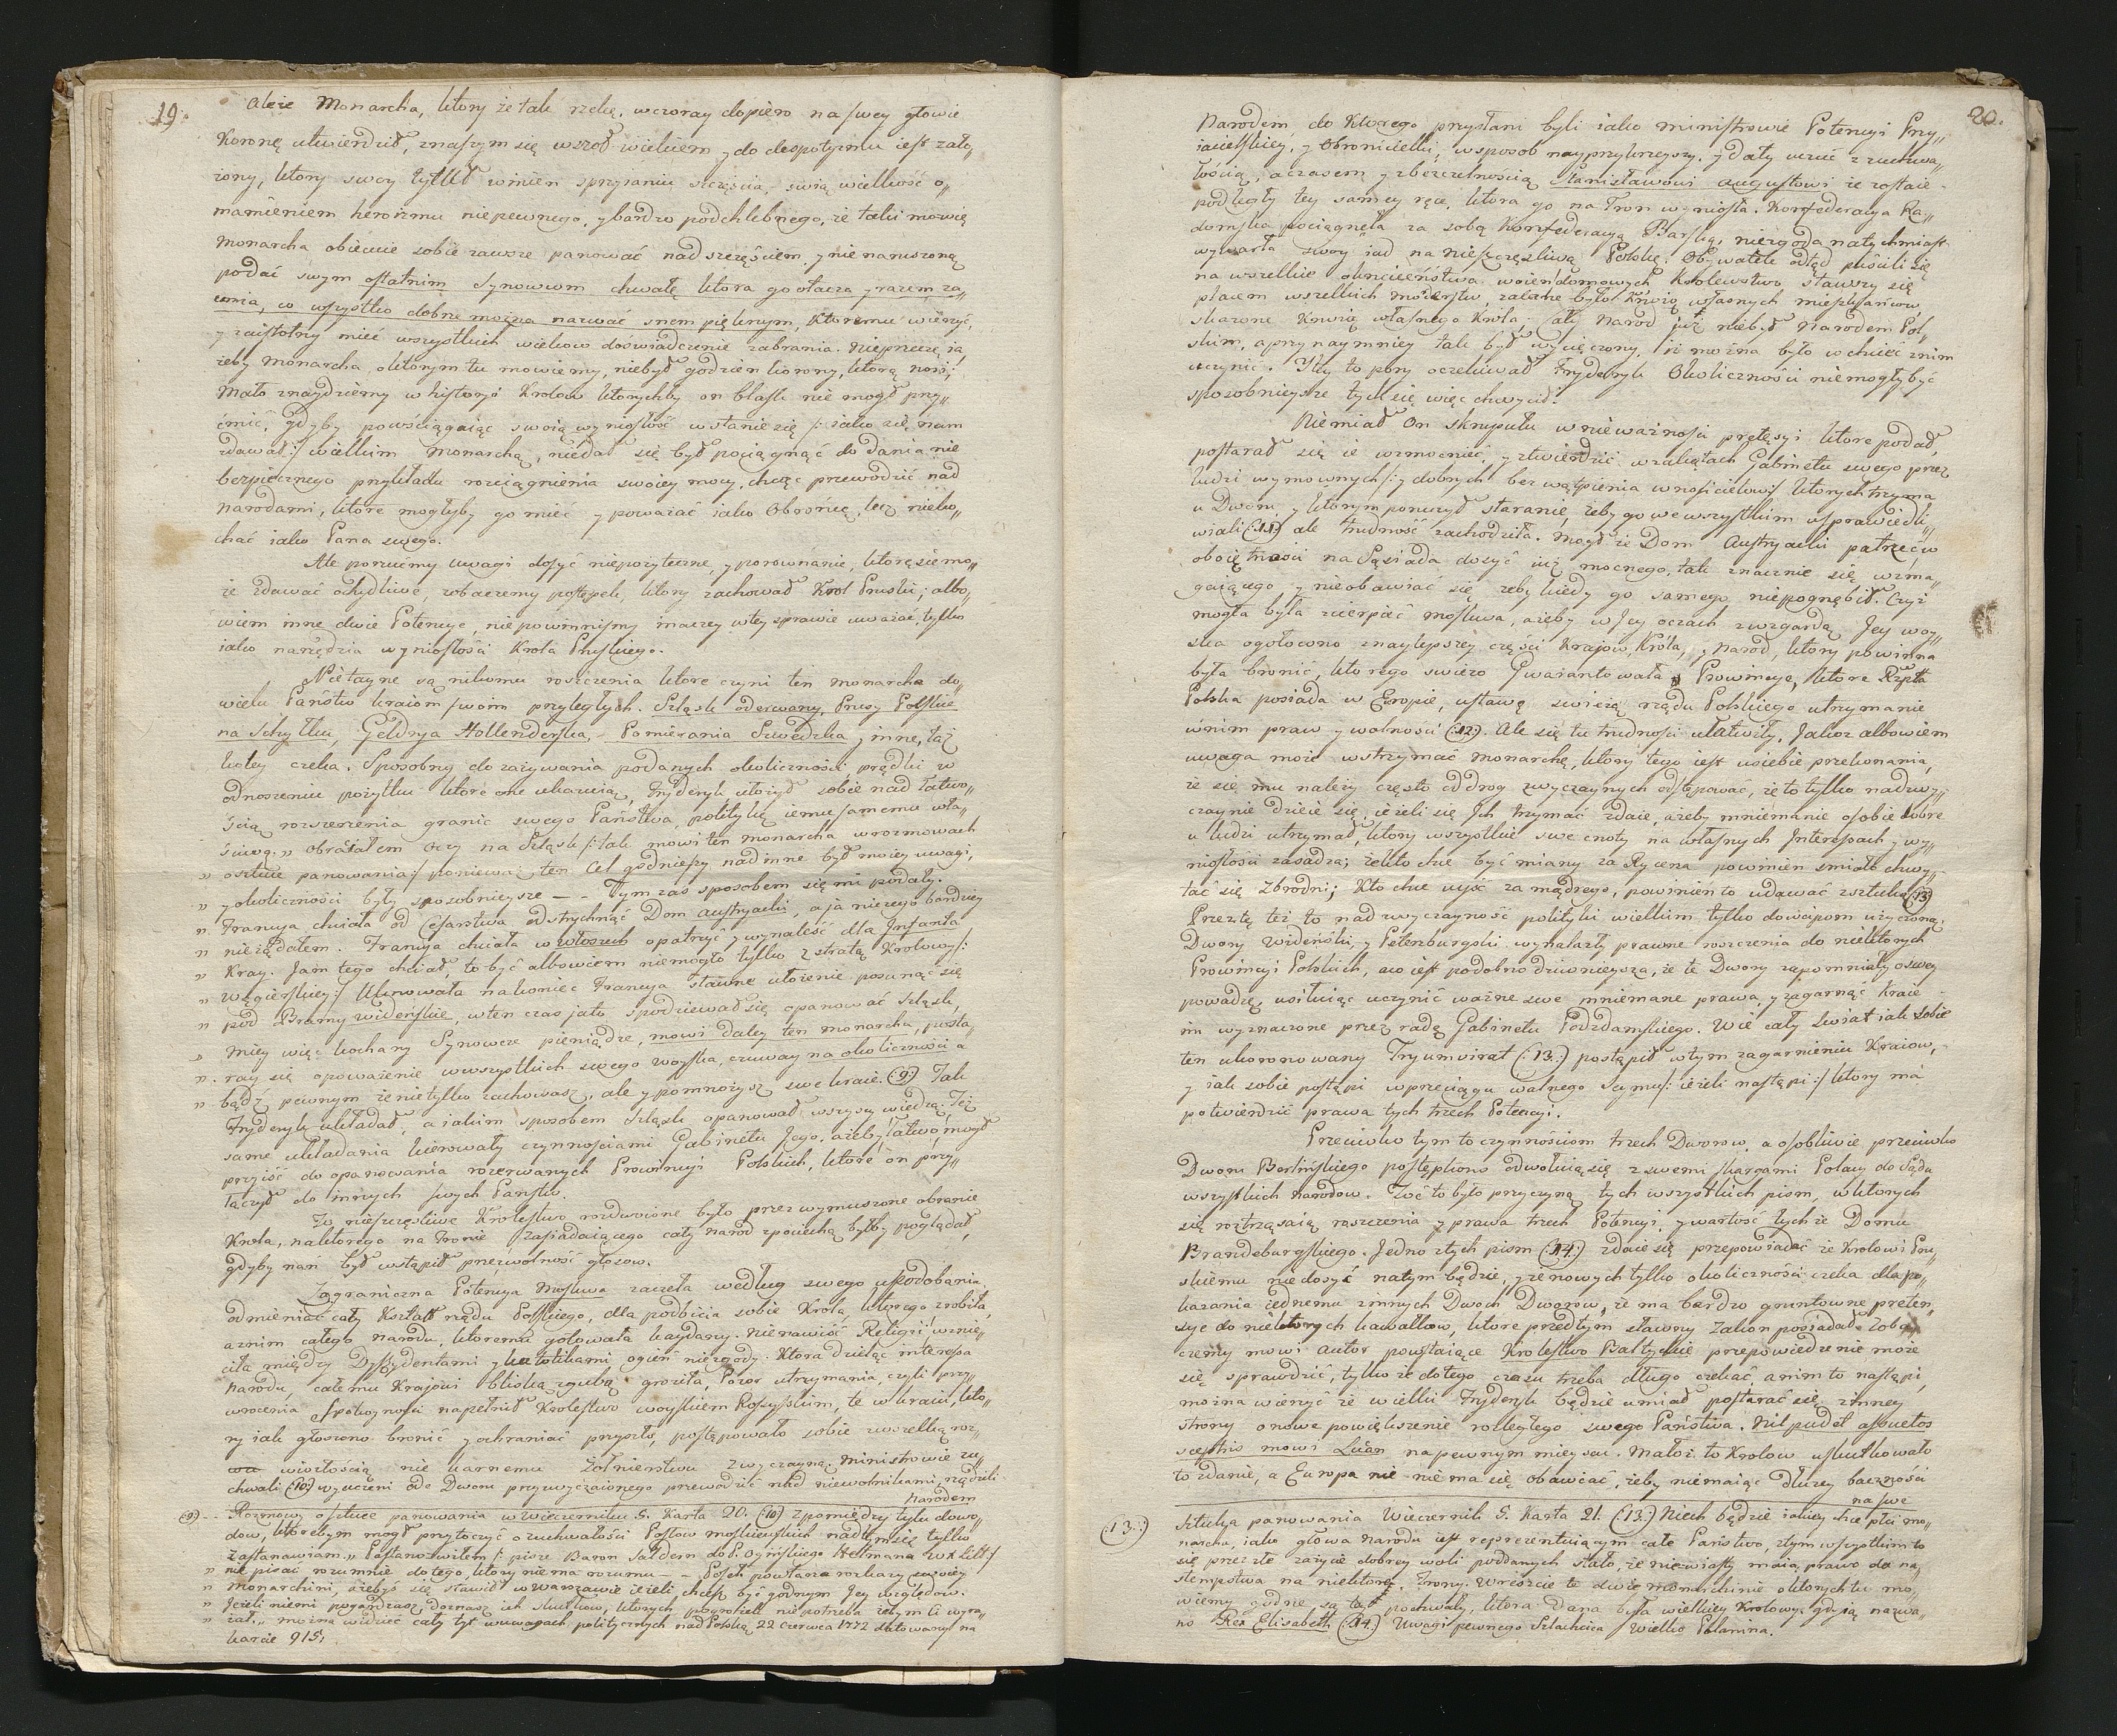 19.
Ależe Monarcha, ktory że tak rzekę, wczoray dopiero na swey głowie
Koronę utwierdził, znaszym się wzrosł wiekiem y do despotyzmu iest zało„
żony, ktory swoy tytuł winien sprzyianiu szczęścia, swią wielkość o„
mamieniem heroizmu niepewnego, y bardzo podchlebnego, że taki mowię
Monarcha obiecuie sobie zawsze panować nad szczęściem, y nie naruszoną
podać swym ostatnim Synowcom chwałę ktora go otacza y razem za„
cmia, co wszystko dobrze można nazwać snem pięknym, Ktoremu wierzyć,
y zaistotny mieć wszystkich wiekow doświadczenie zabrania. Nieprzeczę ia
żeby Monarcha, o ktorym tu mowiemy, niebył godzien korony, ktorą nosi;
Mało znaydziemy w historyi Krolow ktorychby on blask nie mogł przy„
ćmić, gdyby powściągaiąc swoią wyniosłość w stanie się /: iako się nam
zdawał :/ wielkim Monarchą, niedał się był pociągnąć do dania nie
bezpiecznego przykładu rozciągnienia swoiey mocy, chcąc przewodzić nad
Narodami, ktore mogłyby go mieć y poważać iako Obrońcę, lecz nieko„
chać iako Pana swego.
Ale porzućmy uwagi dosyć niepożyteczne, y porownanie, ktore się mo„
że zdawać ochydliwe, zobaczemy postępek, ktory zachował Krol Pruski; albo„
wiem inne dwie Potencye, niepowinnismy inaczey wtey sprawie uważać, tylko
iako narzędzia wyniosłości Krola Pruskiego.
Nietayne są nikomu roszczenia ktore czyni ten Monarcha do„
wielu Państw kraiom swoim przyległych. Szląsk oderwany, Prusy Polskie
na schyłku, Geldrya Hollenderska, Pomierania Szwedzka y inne, też
koley czeka. Sposobny do zażywania podanych okoliczności prędki w
odnoszeniu pożytku ktore one ukazuią, Fryderyk ułożył sobie nad łatwo„
ścią rozszerzenia granic swego Państwa, politykę iemu samemu wła„
ściwą. „ Obrałem Oczy na Szląsk /: tak mowi ten Monarcha w rozmowach
„ o sztuce panowania :/ ponieważ ten Cel godnieyszy nad inne był moiey uwagi,
„ y okoliczności były sposobnieysze — - Tym zaś sposobem się mi podały.
„ Francya chciała od Cesarstwa odstrychnąć Dom Austryacki, a ja niczego bardziey
„ nieżądałem. Francya chciała w Włoszech opatrzyć y wynaleść dla Infanta
„ Kray. Jam tego chciał, to być albowiem niemogło tylko z stratą Krolowy /:
„ Węgierskiey :/ Uknowała nakoniec Francya sławne ułożenie posunąć się
„ pod Bramy Wideńskie, w ten czas jato spodziewał się opanować Szląsk,
„ Miey więc kochany Synowcze pieniądze, mowi daley ten Monarcha, posta„
„ ray się o poważenie w wszystkich swego woyska, czuway na okoliczności a
„ bądź pewnym że nie tylko zachowasz, ale y pomnożysz swe kraie. (:9:) Tak
Fryderyk układał, a iakim sposobem Szląsk opanował wszyscy wiedzą. Też
same układania kierowały czynnościami Gabinetu Jego, ażeby łatwo mogł
przyiść do opanowania rozerwanych Prowincyi Polskich, ktore on przy„
łączył do innych swych Państw.
To nieszczęśliwe Krolestwo rozdwoione było przez wymuszone obranie
Krola, na ktorego na Tronie zasiadaiącego cały narod z pociechą byłby poglądał,
gdyby nań był wstąpił przez wolność głosow.
Zagraniczna Potencya Moskwa zaczeła według swego upodobania
odmieniać cały Kształt rządu Polskiego, dla podbicia sobie Krola, ktorego zrobiła,
a z nim całego narodu, ktoremu gotowała kaydany. Nienawiść Religii wznie„
ciła między Dyssydentami y katolikami ogień niezgody. Ktora dzieląc interessa
Narodu, całemu Krajowi bliską zgubą groziła, Pozor utrzymania, czyli przy„
wrocenia spokoyności napełnił Krolestwo woyskiem Rossyiskim, te w kraiu, kto„
ry iak głoszono bronić y ochraniać przyszło, postępowało sobie z wszelką roz„
wiozłością nie karnemu żołnierstwu zwyczayną. Ministrowie zu„
chwali (:10:) wyuczeni od Dworu przyzwyczaionego przewodzić nad niewolnikami, rządzili
Narodem
(:9:) - Rozmowy o sztuce panowania w Wieczerniku 5. Karta 20. (:10:) Z pomiędzy tylu dowo„
dow, ktorebym mogł przytoczyć o zuchwałości Posłow moskiewskich nad tym się tylko
zastanawiam. „ Postanowiłem /: pisze Baron Saldern do P. Ogińskiego Hetmana W. X. Litt :/
„ nie pisać rozumnie do tego, ktory niema rozumu — - Poseł powtarza rozkazy swoiey
„ Monarchini, ażebyś się stawił w Warszawie ieżeli chcesz być godnym Jey względow.
„ Jeżeli niemi pogardzasz, doznasz ich skutkow, ktorych pogrożek niepotrzeba żebym Ci wyra„
„ żał. „ można widzieć cały tyt w uwagach politycznych nad Polską 22 Czerwca 1772 datowany na
karcie 915.
20.
Narodem, do Ktorego przysłani byli iako ministrowie Potencyi Przy„
iacielskiey, y Obronicielki, w sposob nayprzykrzeyszy, y dały uczuć z zuchwa„
łością, a czasem y zbezczelnością Stanisławowi Augustowi że zostaie
podległy tey samey ręce, ktora go na Tron wyniosła. Konfederacya Ra„
domska pociągnęła za sobą Konfederacyą Barską, niezgoda natychmiast
wywarła swoy iad na nieszczęśliwą Polskę. Obywatele odtąd puścili się
na wszelkie okrucieństwa woien domowych Krolewstwo stawszy się
placem wszelkich moderstw, zalane było krwią własnych mieszkańcow,
skażone Krwią własnego Krola; Cały Narod już niebył Narodem Pol„
skim, a przynaymniey tak był wycięczony, iż można było co chcieć z nim
uczynić. Tey to pory oczekiwał Fryderyk Okoliczności niemogły być
sposobnieysze tych się więc chwycił.
Niemiał On skrupułu w nieważności prętęsyi ktore podał,
postarał się ie wzmocnić, y stwierdzić w zakątach Gabinetu swego przez
ludzi wymownych /: y dobrych bez wątpienia wnosicielow :/ ktorych trzyma
u Dworu, y ktorym poruczył staranie, żeby go we wszystkim usprawiedli„
wiali (:11:) ale trudność zachodziła. Mogł że Dom Austryacki patrzeć w
oboiętności na Sąsiada dosyć iuż mocnego, tak znacznie się wzma„
gaiącego y nieobawiać się, żeby kiedy go samego niepognębił. Czyż
mogła była zcierpieć moskwa, ażeby w Jey oczach z wzgardą Jey woy„
ska ogołocono z naylepszey części Krajow, Króla, y Narod, ktory powinna
była bronić, ktorego swieżo Gwarantowała Prowincye, ktore Rzplta
Polska posiada w Europie, ustawę swieżą rządu Polskiego utrzymanie
w nim praw y wolności (:12:). Ale się te trudności ułatwiły. Jakoż albowiem
uwaga może wstrzymać monarchę, ktory tego iest u siebie przekonania,
że się mu należy często od drog zwyczaynych odstępować, że to tylko nadzwy„
czaynie dzieie się, ieżeli się Jch trzymać zdaie, ażeby mniemanie o sobie dobre
u ludzi utrzymał, ktory wszystkie swe cnoty na własnych Interessach y wy„
niosłości zasadza; że kto chce być miany za Rycerza powinien śmiało chwy„
tać się Zbrodni; Kto chce uyść za mądrego, powinien to udawać z sztuką (:13:)
Przez tę też to nadzwyczayność polityki wielkim tylko dowcipom użyczoną,
Dwory Wideński, y Petersburgski wynalazły prawne roszczenia do niektorych
Prowincyi Polskich, a co iest podobno dziwnieysza, że te Dwory zapomniały o swey
powadze, usiłuiąc uczynić ważne swe mniemane prawa, y zagarnąć kraie
im wyznaczone przez radę Gabinetu Podzdamskiego. Wie cały świat iak sobie
ten ukoronowany Tryumvirat (:13:) postąpił w tym zagarnieniu Kraiow,
y iak sobie postąpi w przeciągu walnego Seymu /: ieżeli nastąpi :/ ktory ma
potwierdzić prawa tych trzech Potencyi.
Przeciwko tym to czynnościom trzech Dworow, a osobliwie przeciwko
Dworu Berlińskiego postępkowo odwołuią się z swemi skargami Polacy do Sądu
wszystkich narodow. Toć to było przyczyną tych wszystkich pism, w ktorych
się roztrząsaią roszczenia y prawa trzech Potencyi, y wartość tychże Domu
Brandeburgskiego. Jedno z tych pism (:14:) zdaie się przepowiadać że Krolowi Pru„
skiemu niedosyć na tym będzie, y że nowych tylko okoliczności czeka dla po„
kazania iednemu z innych Dwoch Dworow, że ma bardzo gruntowne preten„
sye do niektorych kawałkow, ktore przedtym sławny Zakon posiadał. Zoba„
czemy mowi Autor powstaiące Krolestwo Baltyckie przepowiedzenie może
się sprawdzić, tylko że do tego czasu trzeba długo czekać, a nim to nastąpi
można wierzyć że wielki Fryderyk będzie umiał postarać się z inney
strony o nowe powiększenie rozległego swego Państwa. Nil pudet assuetos
sceptris mowi Lucan na pewnym mieyscu. Małoż to Krolow uskutkowało
to zdanie, a Europa nie niema się obawiać, żeby niemaiąc dłużey baczności
na swe
(:13:) Sztuka panowania Wieczernik 5. Karta 21. (:13:) Niech będzie iakiey chce płci mo„
narcha, iako głowa narodu iest reprezentuiącym całe Państwo, z tym wszystkim to
się przez złe zażycie dobrey woli poddanych stało, że niewiasty maią prawo do na„
stempstwa na niektore Trony. Wreszcie te dwie monarchinie o ktorych tu mo„
wiemy godne są tey pochwały, ktora dana była wielkiey Krolowy gdy ią nazwa„
no Rex Elisabeth (:14:) Uwagi pewnego Szlachcica Wielko Polanina.